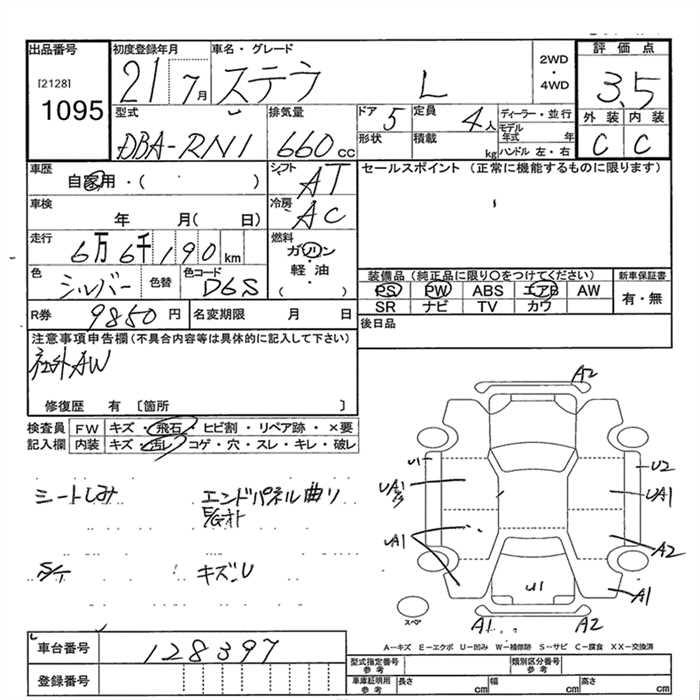 出品番号
[2128]
1095
初度登録年月
21 / 7月
車名・グレード
ステラ L
2WD
・
4WD
評価点
3.5
外装 内装
C C
型式
DBA-RN1
排気量
660cc
ドア 5
定員 4人
形状
積載 kg
ディーラー・並行
モデル年式 年
ハンドル 左・右
車歴
自家用・( )
車検
年 月( 日)
シフト
AT
冷房
AC
セールスポイント (正常に機能するものに限ります)
走行
6万6千190km
燃料
ガソリン
・
軽油
( )
色
シルバー
色替
色コード
D6S
装備品(純正品に限り○をつけてください)
PS PW ABS エアB AW
SR ナビ TV カワ
新車保証書
有・無
R券 9850円
名変期限 月 日
後日品
注意事項申告欄(不具合内容等は具体的に記入して下さい)
社外AW
修復歴 有 〔箇所 〕
検査員 FW キズ・飛石・ヒビ割・リペア跡・×要
記入欄 内装 キズ・汚レ・コゲ・穴・スレ・キレ・破レ
シートしみ
エンドパネル曲リ
E/Gオト
S/T
キズ、U
A2
U1
U2
UA1
UA1
UA1
A2
U1
A1
スペア
A1
A2
A-キズ E-エクボ U-凹み W-補修跡 S-サビ C-腐食 XX-交換済
車台番号
128397
登録番号
型式指定番号
参考
類別区分番号
参考
車庫証明用
参考
長さ cm
幅 cm
高さ cm